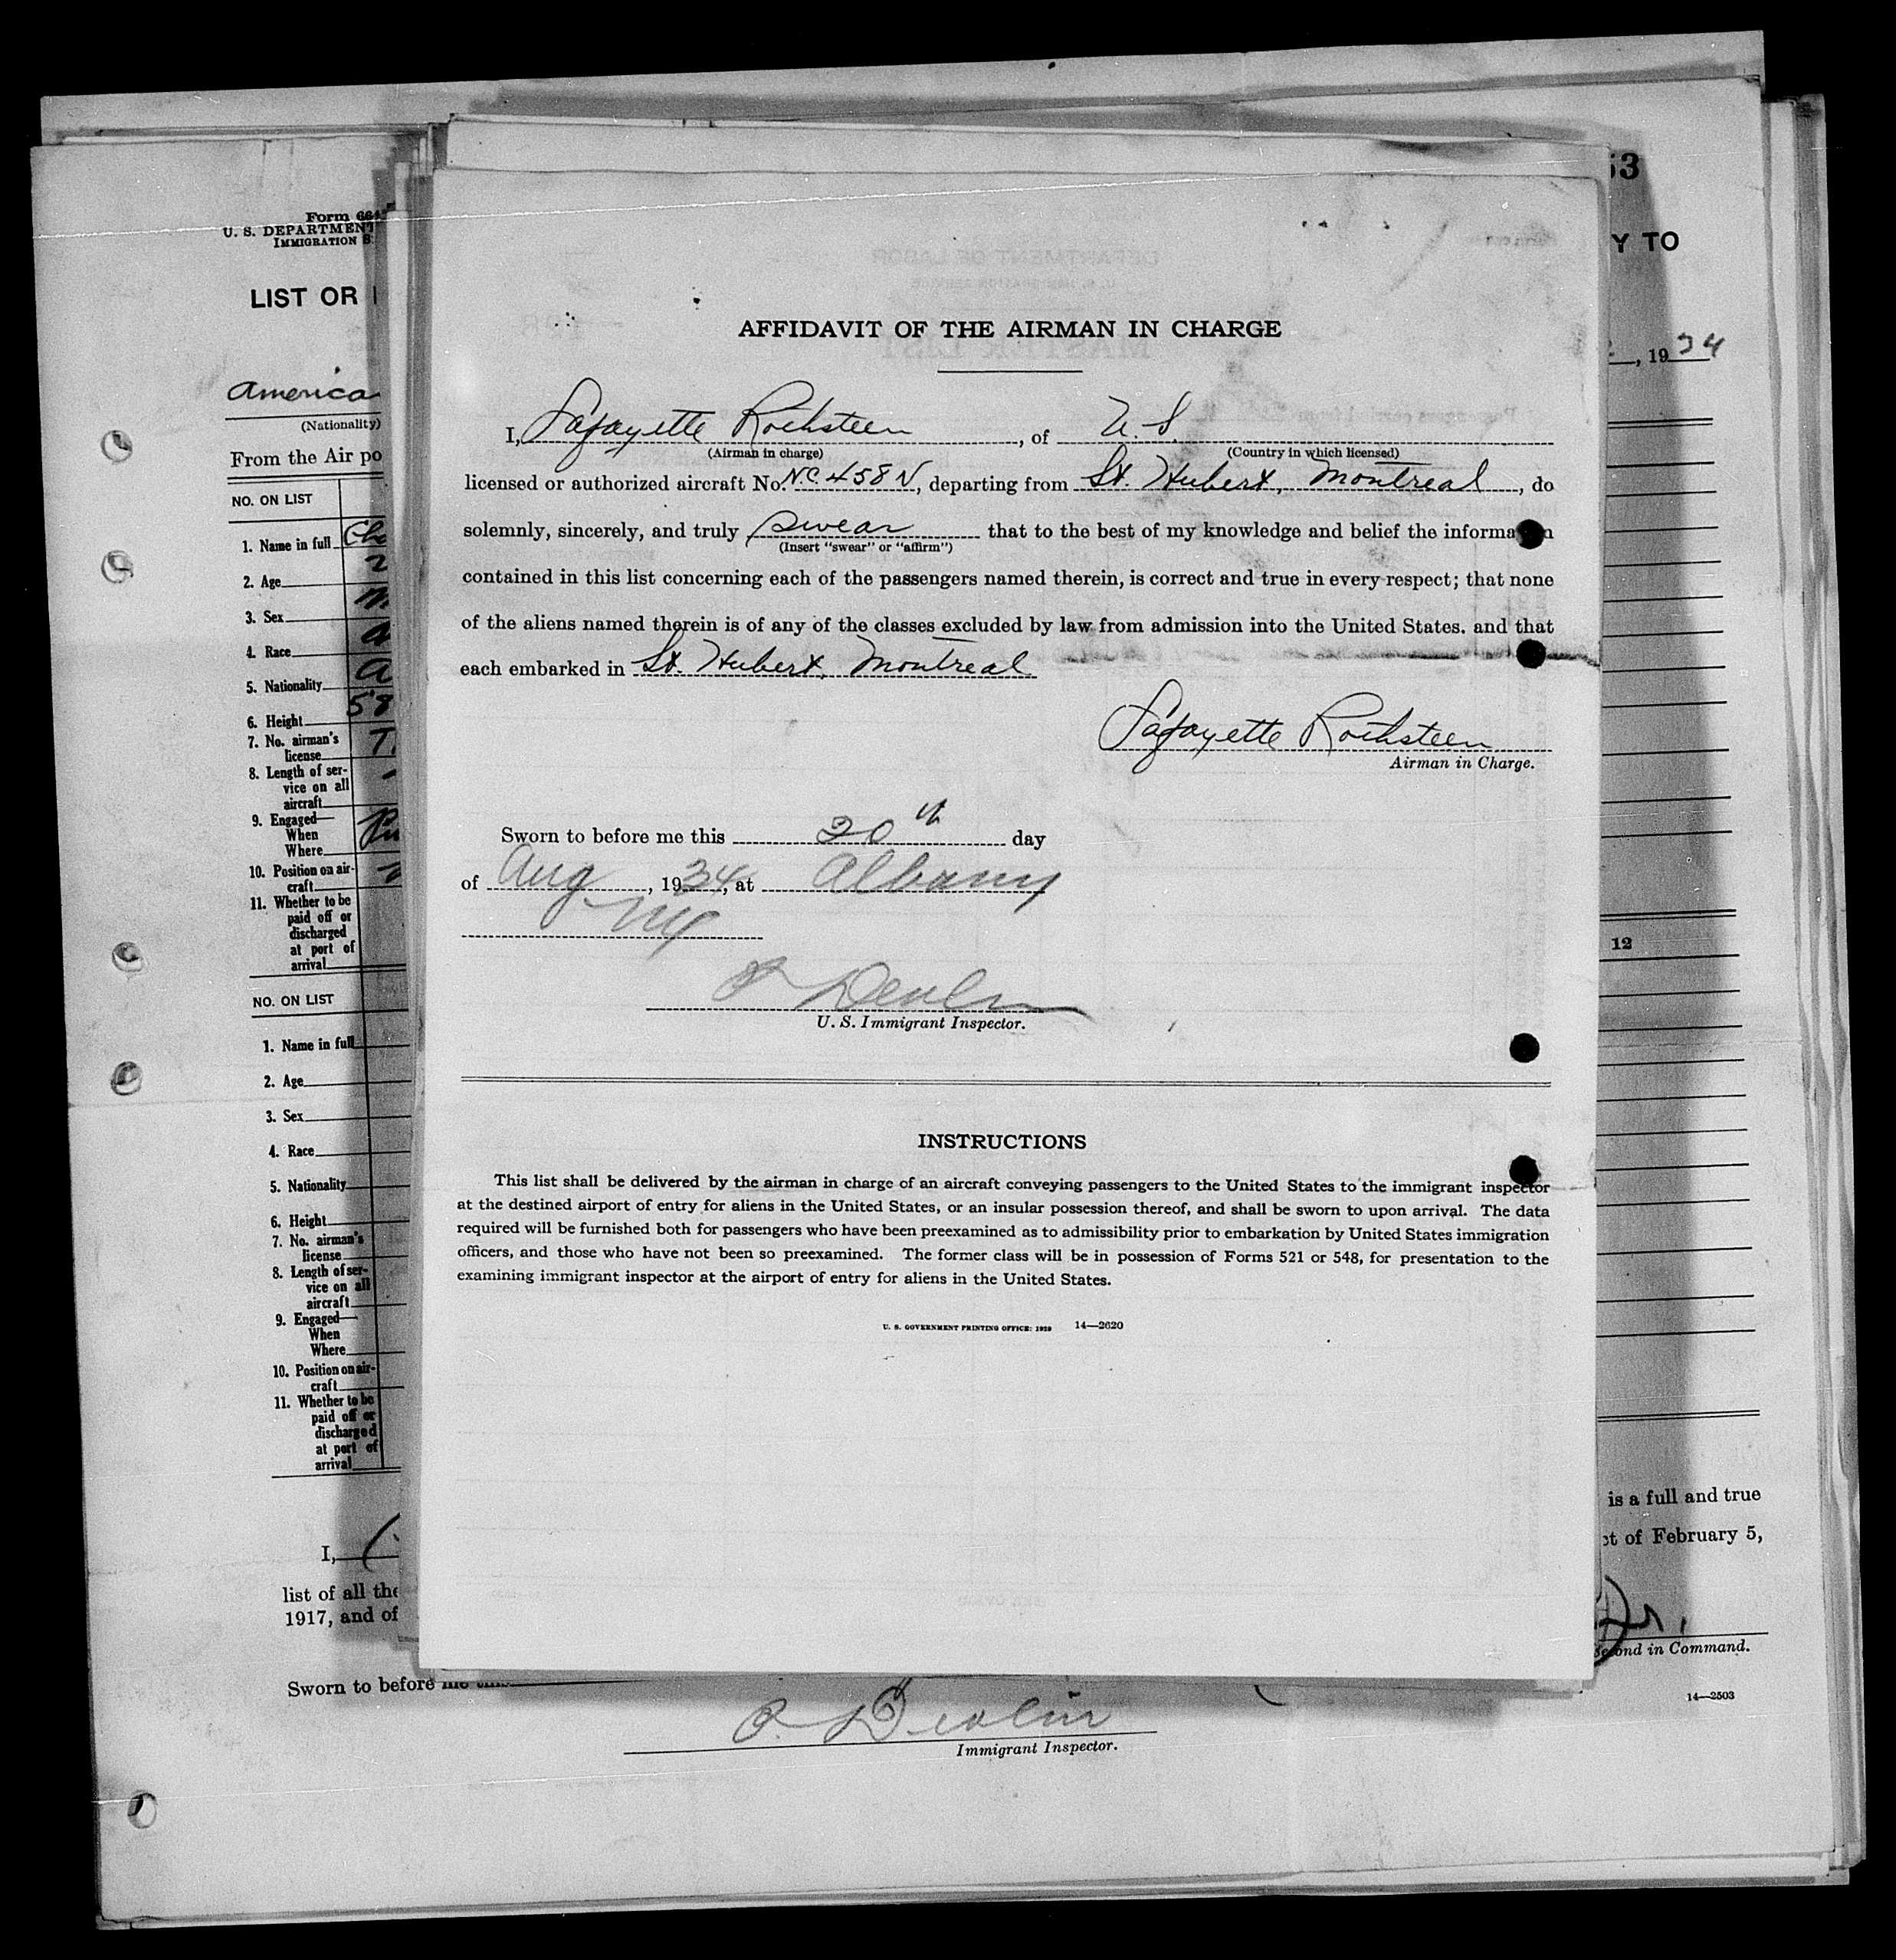 AFFIDAVIT OF THE AIRMAN IN CHARGE
I, Lafayette Rochsteen, of U. S.
(Airman in charge) (Country in which licensed)
licensed or authorized aircraft No. N.C. 458 N, departing from St. Hubert, Montreal, do
solemnly, sincerely, and truly swear that to the best of my knowledge and belief the information
(Insert "swear" or "affirm")
contained in this list concerning each of the passengers named therein, is correct and true in every respect; that none
of the aliens named therein is of any of the classes excluded by law from admission into the United States. and that
each embarked in St. Hubert, Montreal
Lafayette Rochsteen
Airman in Charge.
Sworn to before me this 20th day
of Aug, 1934, at Albany
NY
P Devlin
U. S. Immigrant Inspector.
INSTRUCTIONS
This list shall be delivered by the airman in charge of an aircraft conveying passengers to the United States to the immigrant inspector
at the destined airport of entry for aliens in the United States, or an insular possession thereof, and shall be sworn to upon arrival. The data
required will be furnished both for passengers who have been preexamined as to admissibility prior to embarkation by United States immigration
officers, and those who have not been so preexamined. The former class will be in possession of Forms 521 or 548, for presentation to the
examining immigrant inspector at the airport of entry for aliens in the United States.
U. S. GOVERNMENT PRINTING OFFICE: 1929 14—2620
Form 664
U. S. DEPARTMENT
IMMIGRATION S
LIST OR
America
(Nationality)
From the Air po
NO. ON LIST
1. Name in full
2. Age
3. Sex
4. Race
5. Nationality
6. Height
7. No. airman's
license
8. Length of ser-
vice on all
aircraft
9. Engaged—
When
Where
10. Position on air-
craft
11. Whether to be
paid off or
discharged
at port of
arrival
NO. ON LIST
1. Name in full
2. Age
3. Sex
4. Race
5. Nationality
6. Height
7. No. airman's
license
8. Length of ser-
vice on all
aircraft
9. Engaged—
When
Where
10. Position on air-
craft
11. Whether to be
paid off or
discharged
at port of
arrival
I,
list of all the
1917, and of
Sworn to before me this
P. Devlin
Immigrant Inspector.
53
Y TO
, 1934
12
is a full and true
ct of February 5,
Jr.
Second in Command.
14—2503